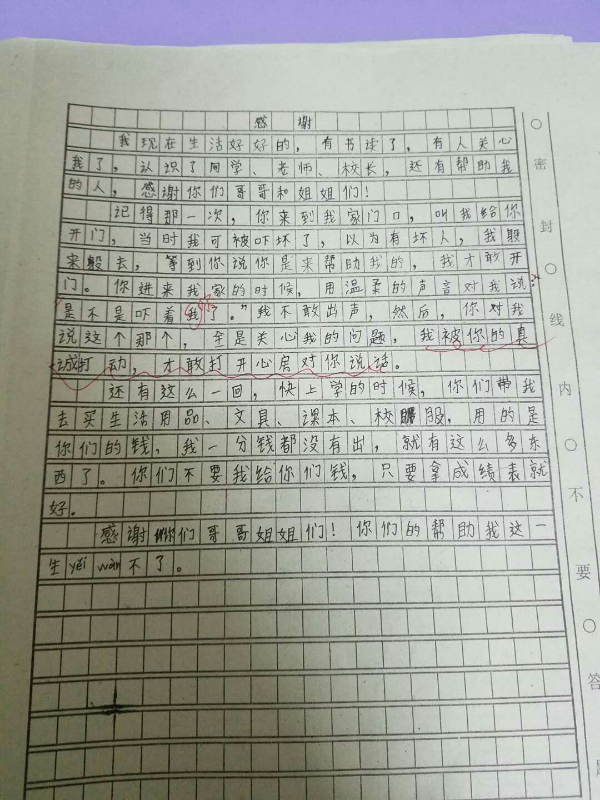 感谢
我现在生活好好的，有书读了，有人关心
我了，认识了同学、老师、校长，还有帮助我
的人，感谢你们哥哥和姐姐们！
记得那一次，你来到我家门口，叫我给你
开门，当时我可被吓坏了，以为有坏人，我躲
来躲去，等到你说你是来帮助我的，我才敢开
门。你进来我家的时候，用温柔的声音对我说："
是不是吓着我了。"我不敢出声，然后，你对我
你
说这个那个，全是关心我的问题，我被你的真
诚打动，才敢打开心房对你说话。
还有这么一回，快上学的时候，你们带我
去买生活用品、文具、课本、校服，用的是
你们的钱，我一分钱都没有出，就有这么多东
西了。你们不要我给你们钱，只要拿成绩表就
好。
感谢你们哥哥姐姐们！你们的帮助我这一
生yěi wàn不了。
密封线内不要答